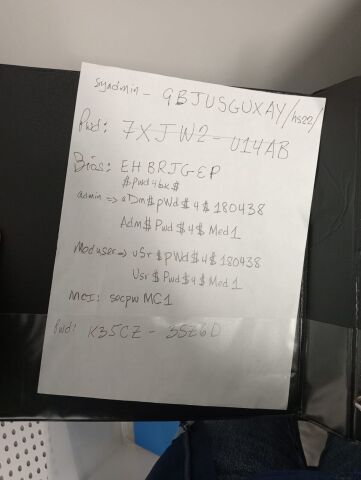 sysdmin - 9BJUSGUXAY/hs22/
Pwd: 7XJW2 - U14AB
Bios: EHBRJGEP
$pwd4bx$
admin => aDm$pWd$4$180438
Adm$Pwd$4$Med1
Moduser=> uSr$pWd$4$180438
Usr$Pwd$4$Med1
MCI: socpwMC1
Pwd: K35CZ - 35Z6D